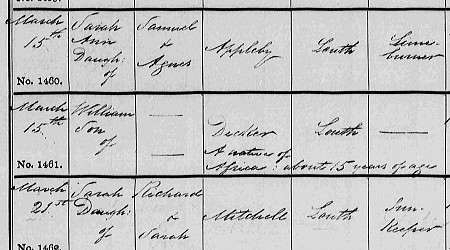 March 15th Sarah Ann Daugh: of Samuel & Agnes Appleby Louth Lime-burner
No. 1460.
March 15th William Son of — — Dickler Louth —
A native of Africa: about 15 years of age
No. 1461.
March 21st Sarah Daugh: of Richard & Sarah Mitchell Louth Inn-Keeper
No. 1462.